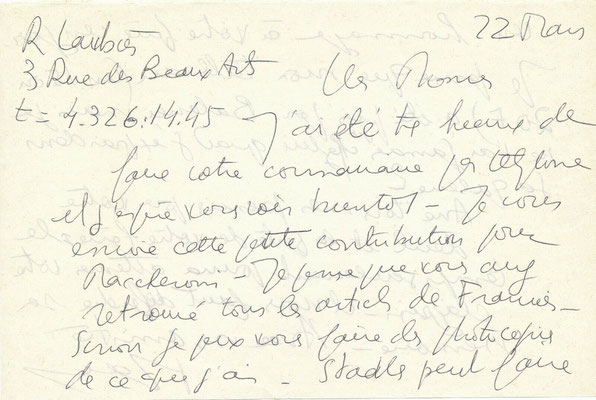 R Laubiès
22 Mars
3 Rue des Beaux Arts
t = 4.326.14.45
J'ai été très heureux de
faire votre connaissance par téléphone
et j'espère vous voir bientôt – Je vous
envoie cette petite contribution pour
Maccheroni – Je pense que vous avez
retrouvé tous les articles de Francis –
Sinon je peux vous faire des photocopies
de ce que j'ai – Stadler peut faire